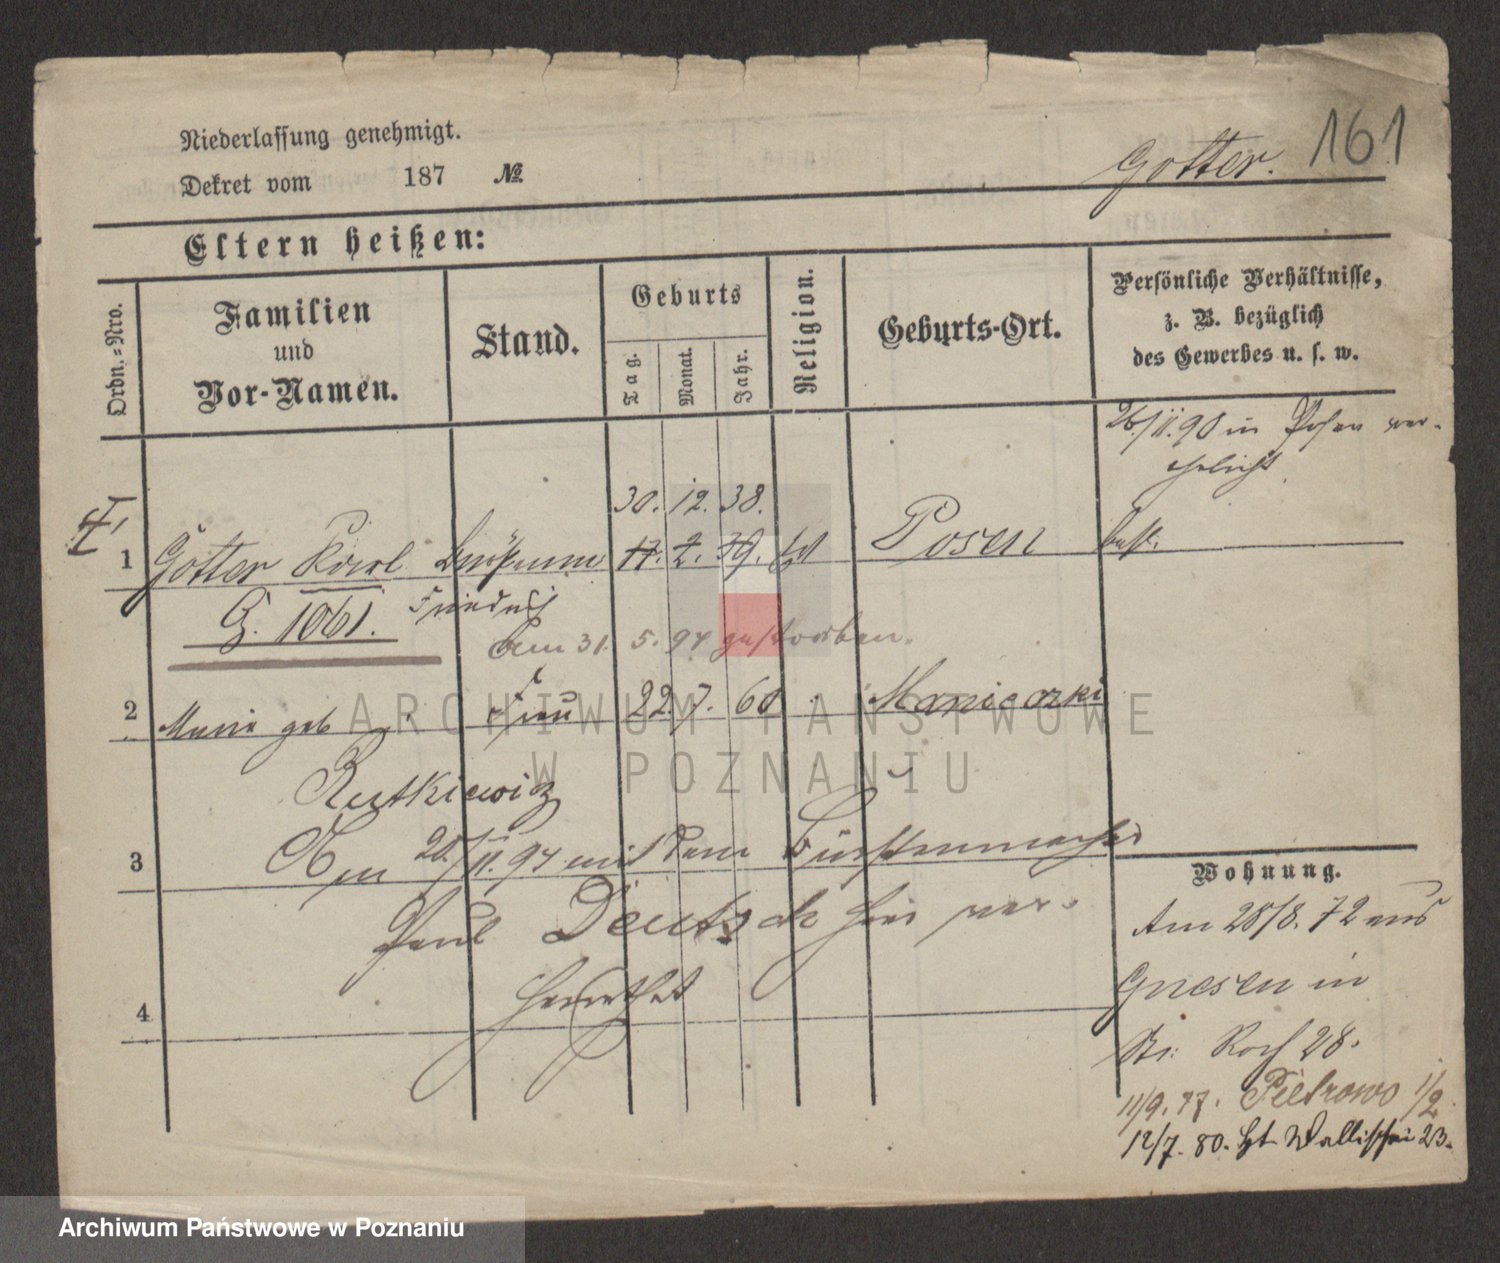 Niederlassung genehmigt.
Dekret vom 187 №
Gotter. 161
Eltern heißen:
Ordn.=Nro.
Familien
und
Vor-Namen.
Stand.
Geburts
Tag.
Monat.
Jahr.
Religion.
Geburts-Ort.
Persönliche Verhältnisse,
z. B. bezüglich
des Gewerbes u. s. w.
26/11. 90 in Posen ver-
ehelicht
30. 12. 38.
1 Gotter Karl 17. 2. 39. Posen
Friedrich
G. 1061.
Am 31. 5. 94 gestorben.
2 Marie geb Frau 22. 7. 60 Manieczki
Rutkiewicz
3 Am 20/11. 94 mit dem Bürstenmacher
Paul Deutsch hier ver-
heirathet
4
Wohnung.
Am 28/8. 72 aus
Gnesen in
St: Roch 28.
11/9. 77. Pietrowo 1/2
12/7. 80. Wallischei 23.
ARCHIWUM PAŃSTWOWE
W POZNANIU
Archiwum Państwowe w Poznaniu